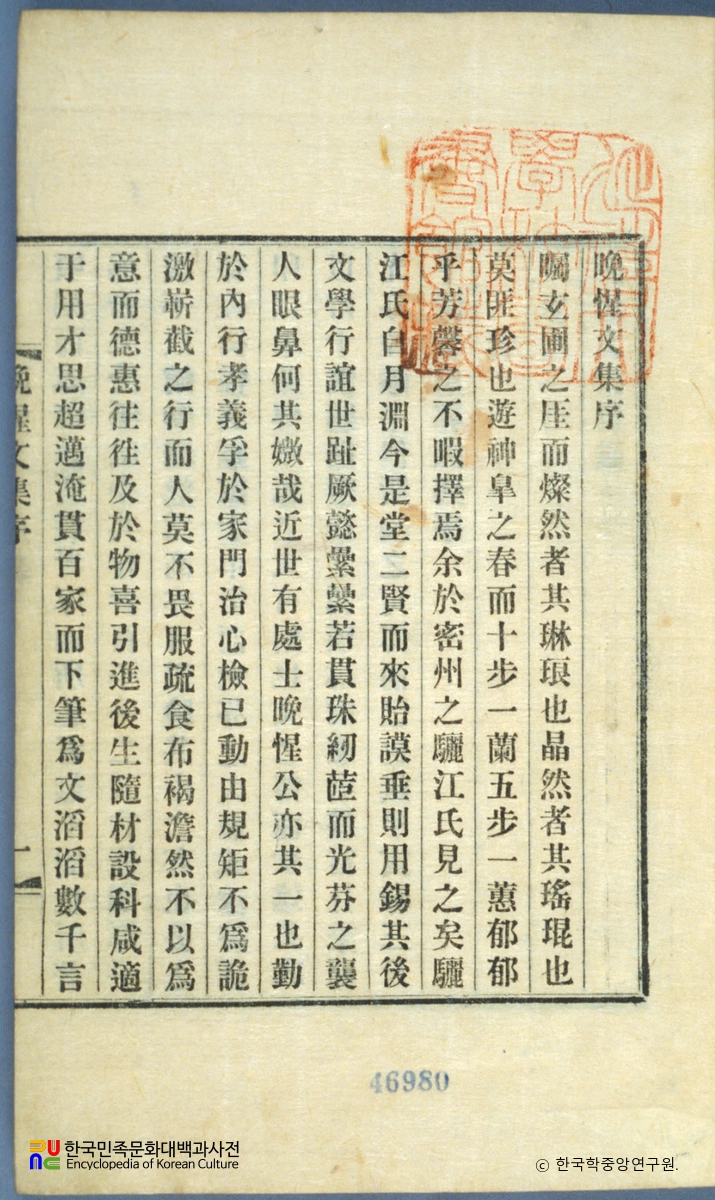 晩惺文集序
矚玄圃之厓而燦然者其琳琅也晶然者其瑤琨也
莫匪珍也遊神皐之春而十步一蘭五步一蕙郁郁
乎芳馨之不暇擇焉余於密州之驪江氏見之矣驪
江氏自月淵今是堂二賢而來貽謨垂則用錫其後
文學行誼世趾厥懿纍纍若貫珠紉茝而光芬之襲
人眼鼻何其媺哉近世有處士晩惺公亦其一也勤
於內行孝義孚於家門治心檢已動由規矩不爲詭
激嶄截之行而人莫不畏服疏食布褐澹然不以爲
意而德惠往徃及於物喜引進後生隨材設科咸適
于用才思超邁淹貫百家而下筆爲文滔滔數千言
晩惺文集序
一
46980
한국민족문화대백과사전
Encyclopedia of Korean Culture
© 한국학중앙연구원.